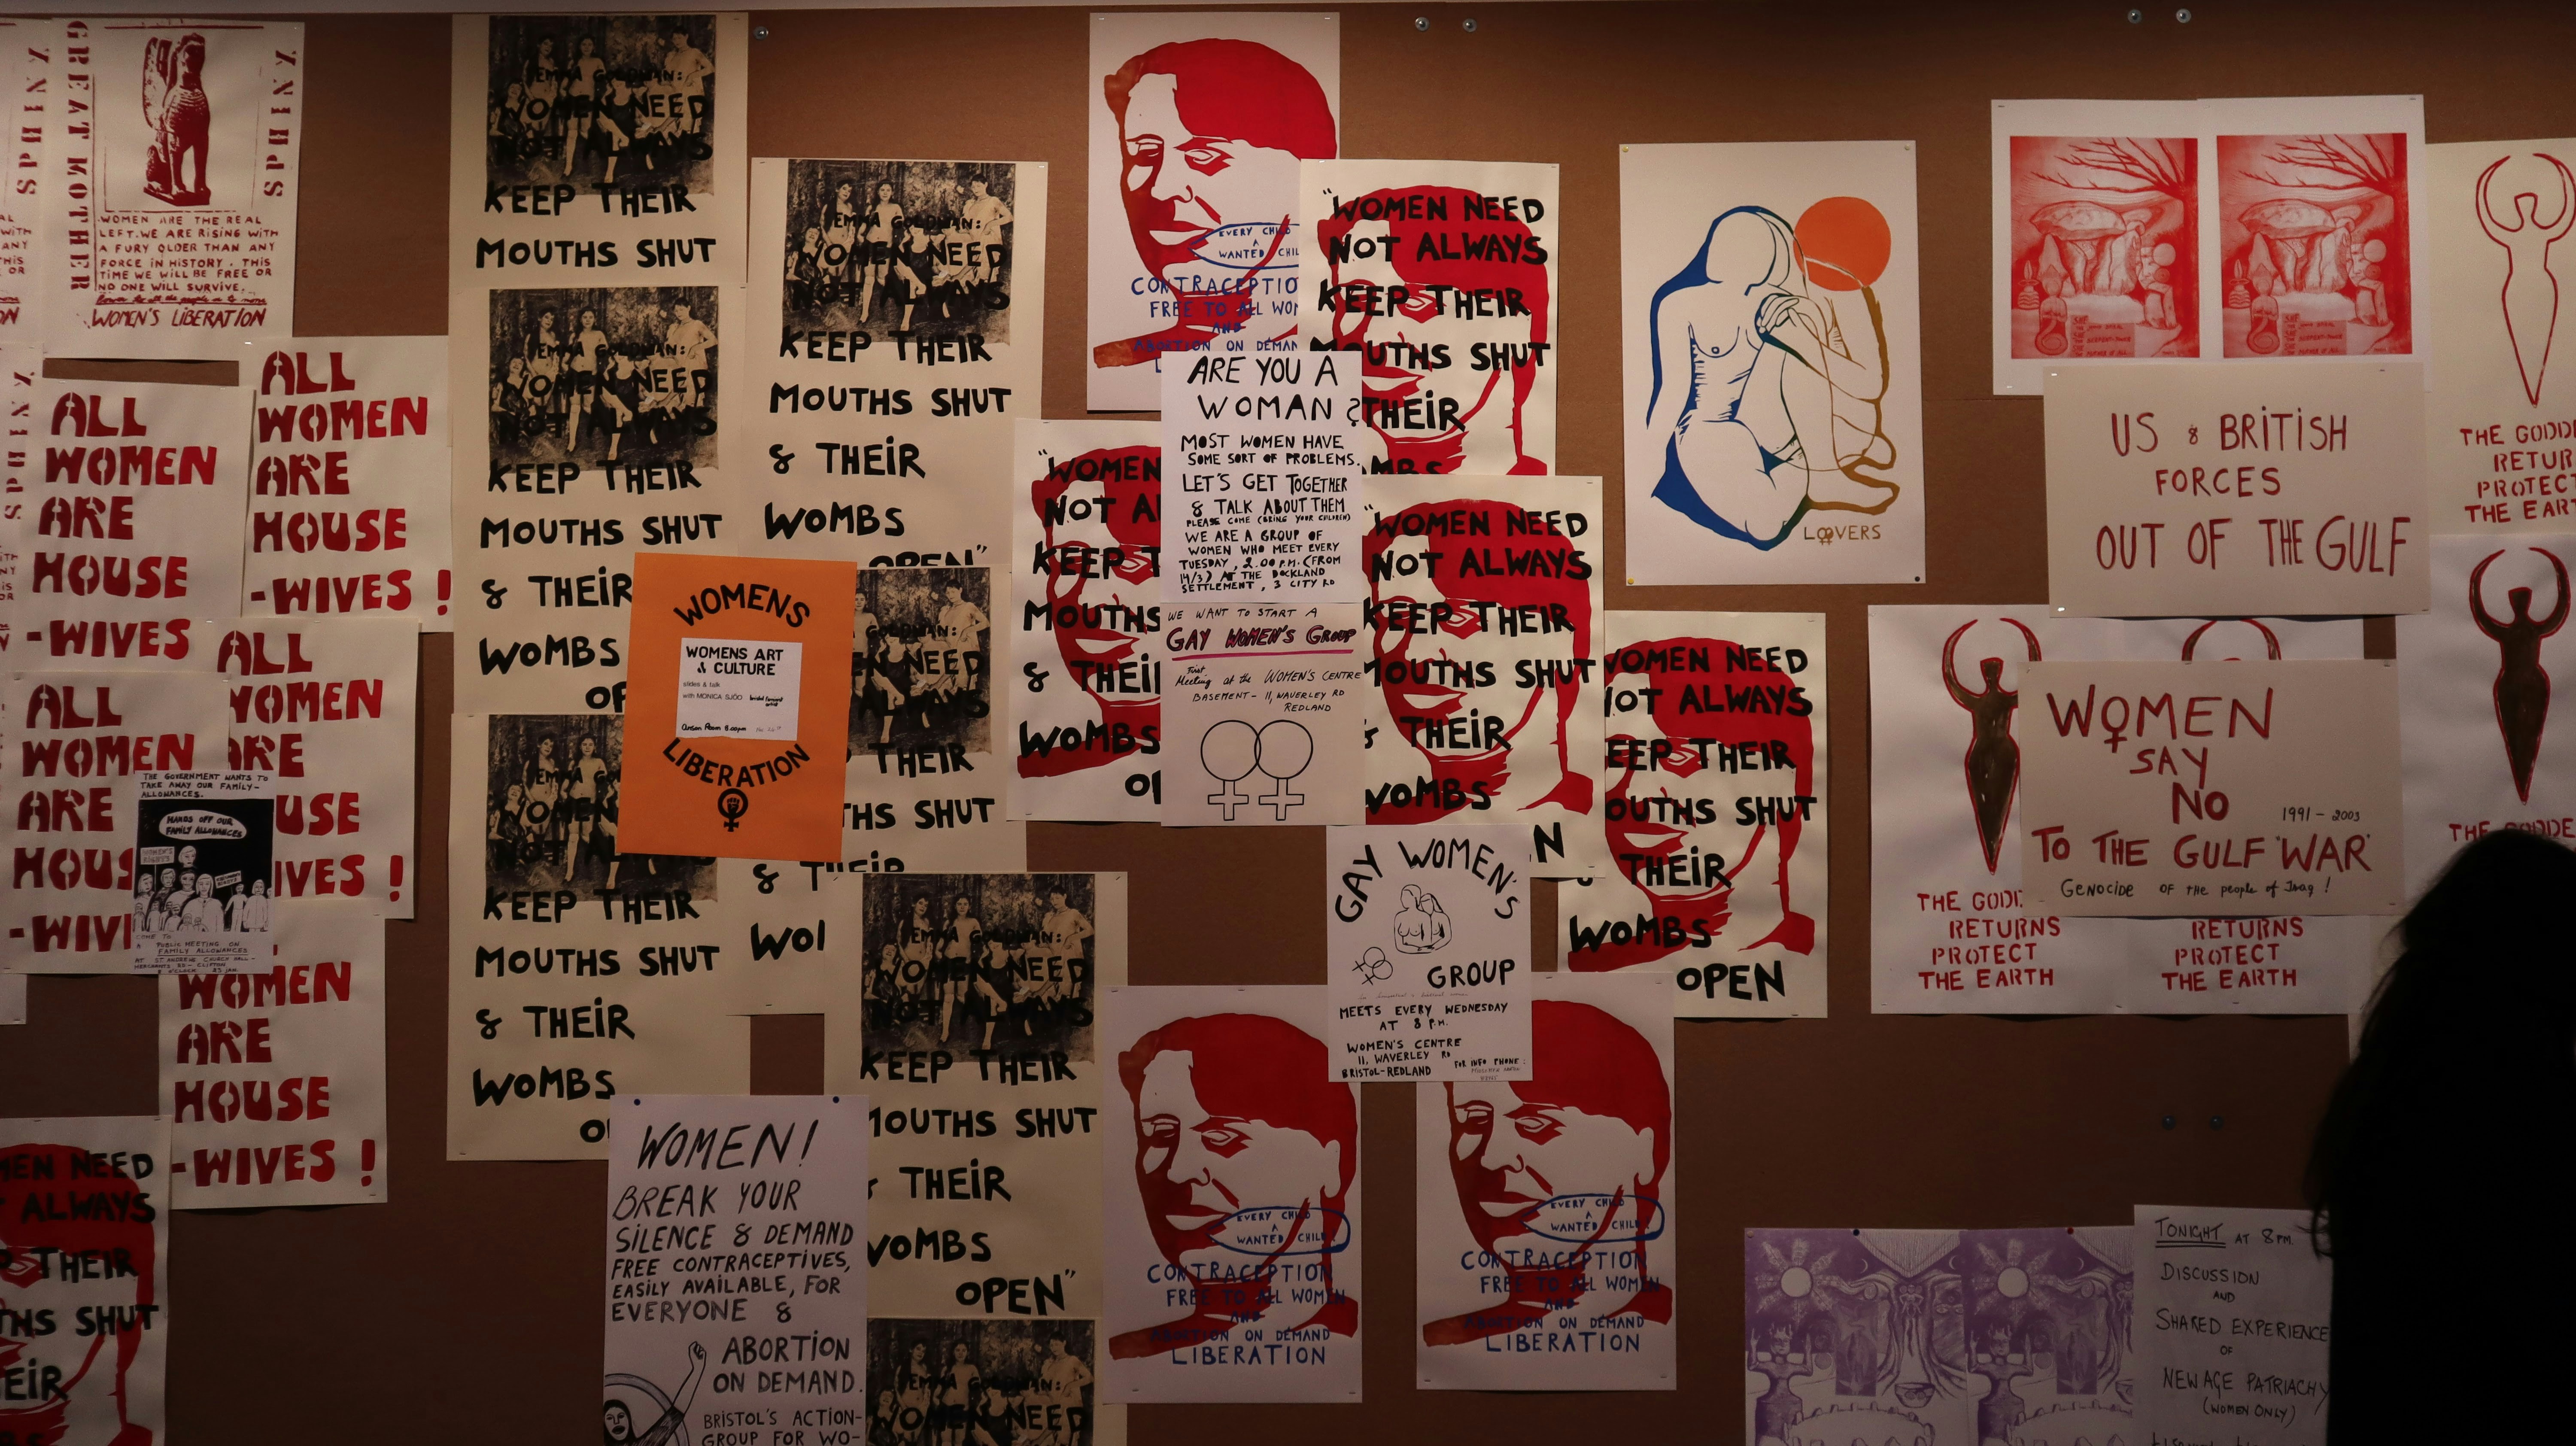 SPHINX
GREAT MOTHER
SPHINX
WOMEN ARE THE REAL
LEFT. WE ARE RISING WITH
A FURY OLDER THAN ANY
FORCE IN HISTORY. THIS
TIME WE WILL BE FREE OR
NO ONE WILL SURVIVE.
WOMEN'S LIBERATION
SPHINX
ALL
WOMEN
ARE
HOUSE
-WIVES
ALL
WOMEN
ARE
HOUSE
-WIVES!
ALL
WOMEN
ARE
HOUS
-WIVI
ALL
WOMEN
ARE
USE
IVES!
THE GOVERNMENT WANTS TO
TAKE AWAY OUR FAMILY-
ALLOWANCES.
HANDS OFF OUR
FAMILY ALLOWANCES
WOMEN'S
RIGHTS
COME TO
A PUBLIC MEETING ON
FAMILY ALLOWANCES
AT ST ANDREWS CHURCH HALL-
CLIFTON
23 JAN.
WOMEN
ARE
HOUSE
-WIVES!
MEN NEED
ALWAYS
THEIR
THS SHUT
EIR
EMMA GOLDMAN:
WOMEN NEED
NOT ALWAYS
KEEP THEIR
MOUTHS SHUT
EMMA GOLDMAN:
WOMEN NEED
NOT ALWAYS
KEEP THEIR
MOUTHS SHUT
& THEIR
WOMBS
OP
EMMA GO
WOMEN
NOT ALWAYS
KEEP THEIR
MOUTHS SHUT
& THEIR
WOMBS
O
EMMA GOLDMAN:
WOMEN NEED
NOT ALWAYS
KEEP THEIR
MOUTHS SHUT
& THEIR
WOMBS
OPEN"
WOMENS
WOMENS ART
& CULTURE
slides & talk
with MONICA SJÖO
Anson Room 8.00pm
LIBERATION
GOLDMAN:
EN NEED
ALWAYS
THEIR
THS SHUT
& THEIR
WOI
EMMA GOLDMAN:
WOMEN NEED
NOT ALWAYS
KEEP THEIR
MOUTHS SHUT
THEIR
WOMBS
OPEN"
EMMA GOLDMAN:
WOMEN NEED
WOMEN!
BREAK YOUR
SILENCE & DEMAND
FREE CONTRACEPTIVES,
EASILY AVAILABLE, FOR
EVERYONE &
ABORTION
ON DEMAND.
BRISTOL'S ACTION-
GROUP FOR WO-
EVERY CHILD
A
WANTED CHIL
CONTRACEPTIO
FREE TO ALL WOM
AND
ABORTION ON DEMAN
L
"WOMEN NEED
NOT ALWAYS
KEEP THEIR
MOUTHS SHUT
THEIR
MBS
"WOMEN
NOT A
KEEP T
MOUTHS
& THEI
WOMBS
O
ARE YOU A
WOMAN?
MOST WOMEN HAVE
SOME SORT OF PROBLEMS.
LET'S GET TOGETHER
& TALK ABOUT THEM
PLEASE COME (BRING YOUR CHILDREN)
WE ARE A GROUP OF
WOMEN WHO MEET EVERY
TUESDAY, 2.00 P.M. (FROM
14/3) AT THE DOCKLAND
SETTLEMENT, 3 CITY RD
WE WANT TO START A
GAY WOMEN'S GROUP
First
Meeting at the WOMEN'S CENTRE
BASEMENT - 11, WAVERLEY RD
REDLAND
"WOMEN NEED
NOT ALWAYS
KEEP THEIR
MOUTHS SHUT
& THEIR
WOMBS
N
WOMEN NEED
NOT ALWAYS
EEP THEIR
OUTHS SHUT
& THEIR
WOMBS
OPEN
GAY WOMEN'S
GROUP
MEETS EVERY WEDNESDAY
AT 8 P.M.
WOMEN'S CENTRE
11, WAVERLEY RD
BRISTOL-REDLAND
FOR INFO PHONE:
EVERY CHILD
A
WANTED CHILD.
CONTRACEPTION
FREE TO ALL WOMEN
AND
ABORTION ON DEMAND
LIBERATION
EVERY CHILD
A
WANTED CHILD.
CONTRACEPTION
FREE TO ALL WOMEN
AND
ABORTION ON DEMAND
LIBERATION
LOVERS
US & BRITISH
FORCES
OUT OF THE GULF
THE GODD
RETUR
PROTEC
THE EAR
WOMEN
SAY
NO
1991 - 2003
TO THE GULF 'WAR'
GENOCIDE OF the people of Iraq!
THE GODD
RETURNS
PROTECT
THE EARTH
RETURNS
PROTECT
THE EARTH
THE GODDE
TONIGHT AT 8PM
DISCUSSION
AND
SHARED EXPERIENCE
OF
NEW AGE PATRIACHY
(WOMEN ONLY)